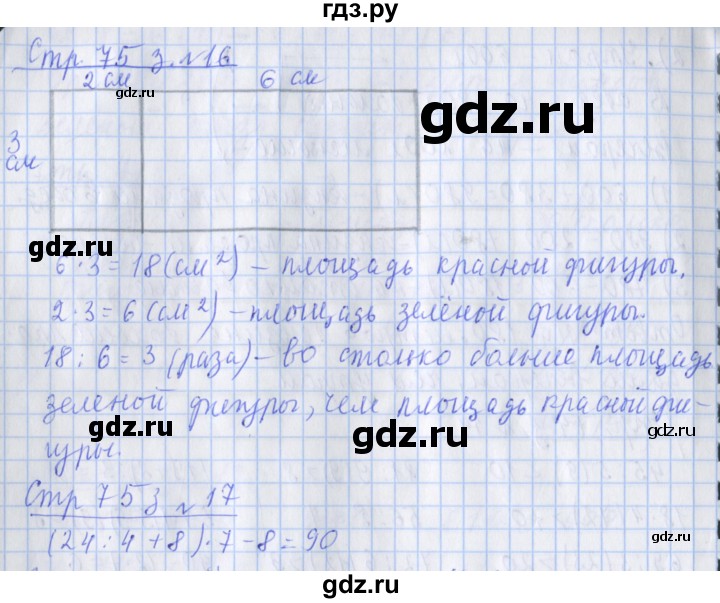 гдз.ру
Стр 75 з. №16
2 см 6 см
gdz.ru
gdz.ru
3 см
gdz.ru
6·3=18(см²) – площадь красной фигуры.
2·3=6(см²) – площадь зелёной фигуры.
18:6=3(раза) – во столько больше площадь
зеленой фигуры, чем площадь красной фи-
gdz.ru
gdz.ru
гуры.
Стр 75 з №17
gdz.ru
(24:4+8)·7-8=90
gdz.ru